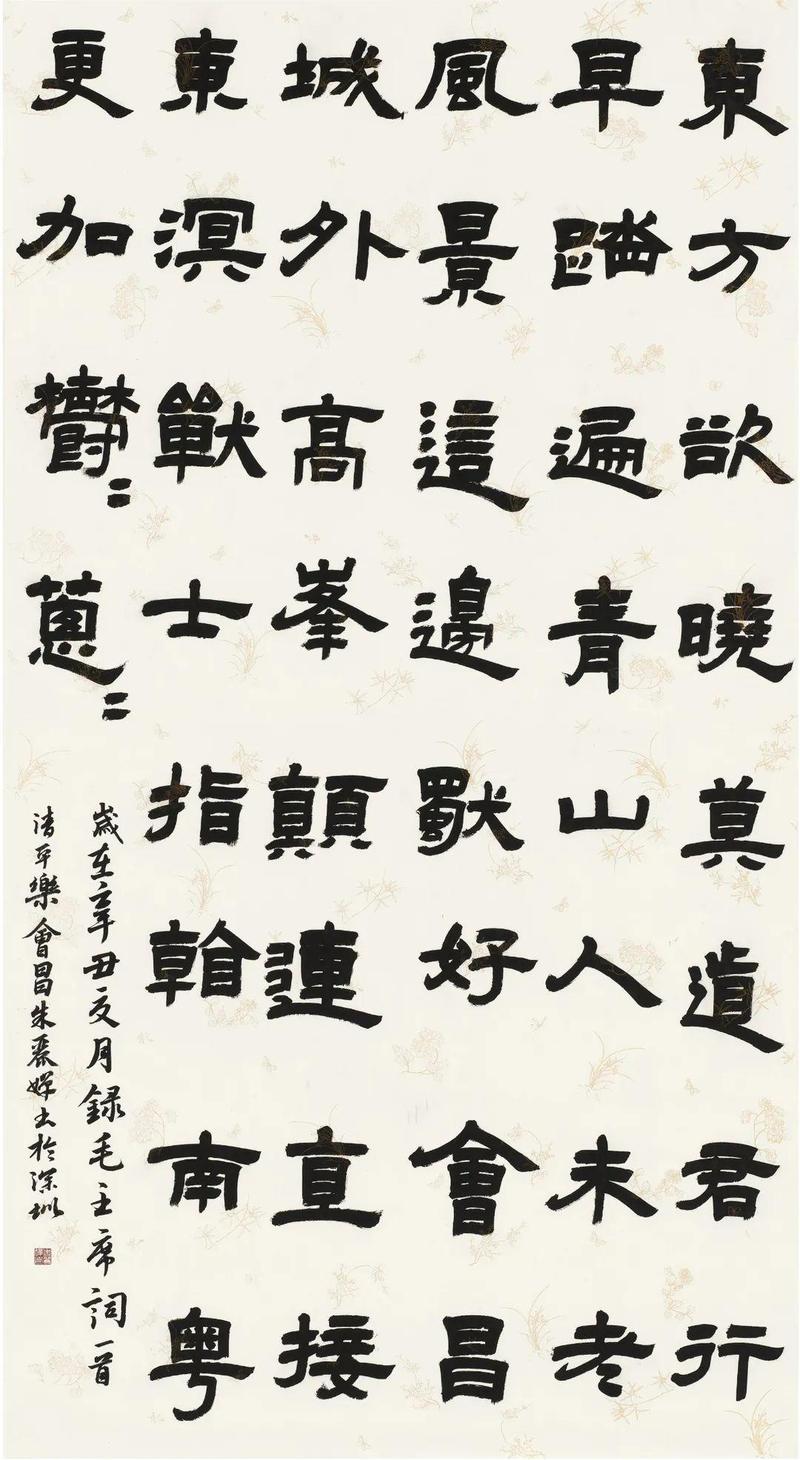 東方欲曉莫道君行
早踏遍青山人未老
風景這邊獨好會昌
城外高峯顛連直接
東溟戰士指看南粵
更加鬱〻蔥〻
歲在辛丑夏月錄毛主席詞一首
清平樂會昌朱麗嬋書於深圳